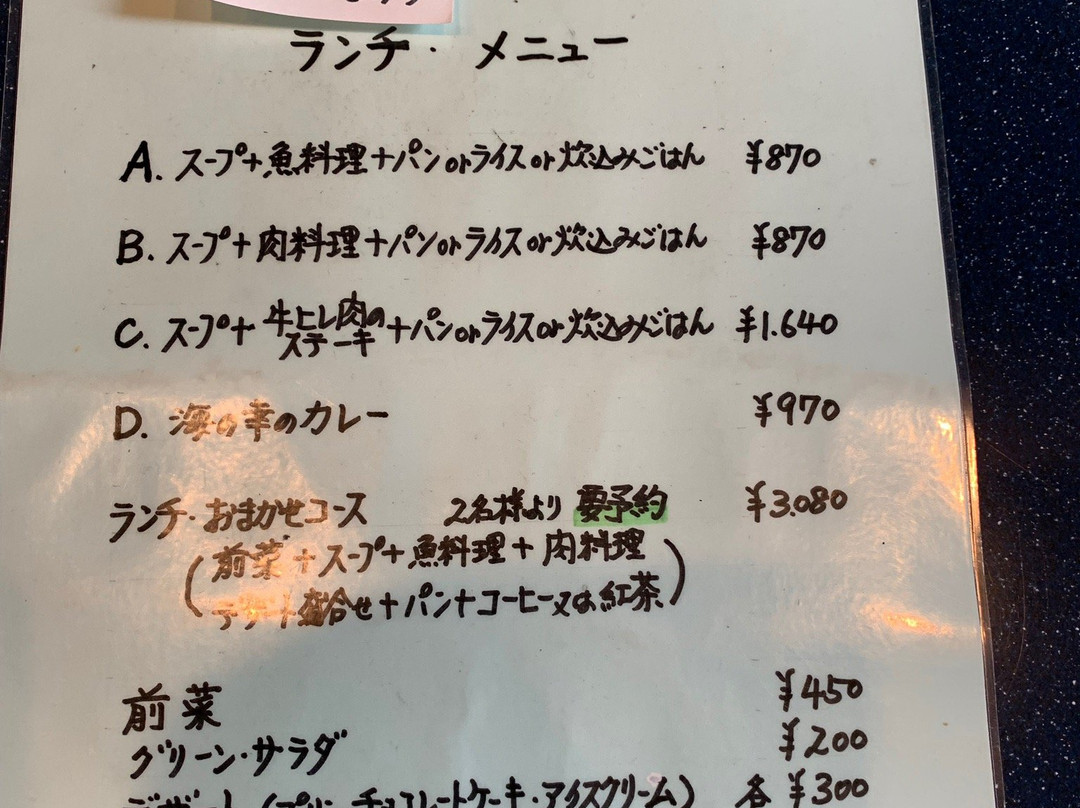 ランチ・メニュー
A. スープ+魚料理+パンorライスor炊込みごはん ¥870
B. スープ+肉料理+パンorライスor炊込みごはん ¥870
C. スープ+牛ヒレ肉のステーキ+パンorライスor炊込みごはん ¥1.640
D. 海の幸のカレー ¥970
ランチ・おまかせコース 2名様より 要予約 ¥3.080
(前菜+スープ+魚料理+肉料理
デザート盛合せ+パン+コーヒー又は紅茶)
前菜 ¥450
グリーン・サラダ ¥200
デザート(プリン・チョコレートケーキ・アイスクリーム) 各 ¥300